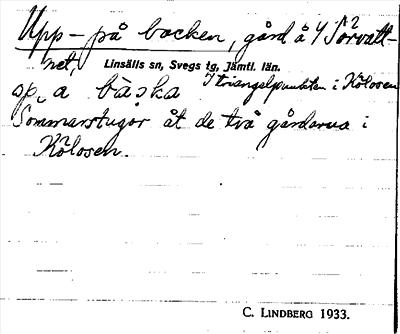 Upp-på backen, gård å 4 Sörvatt-
net, Linsälls sn, Svegs tg, Jämtl. län.
I triangelpunkten i Kölosen
sp, a båska
Sommarstugor åt de två gårdarna i
Kölosen.
C. LINDBERG 1933.